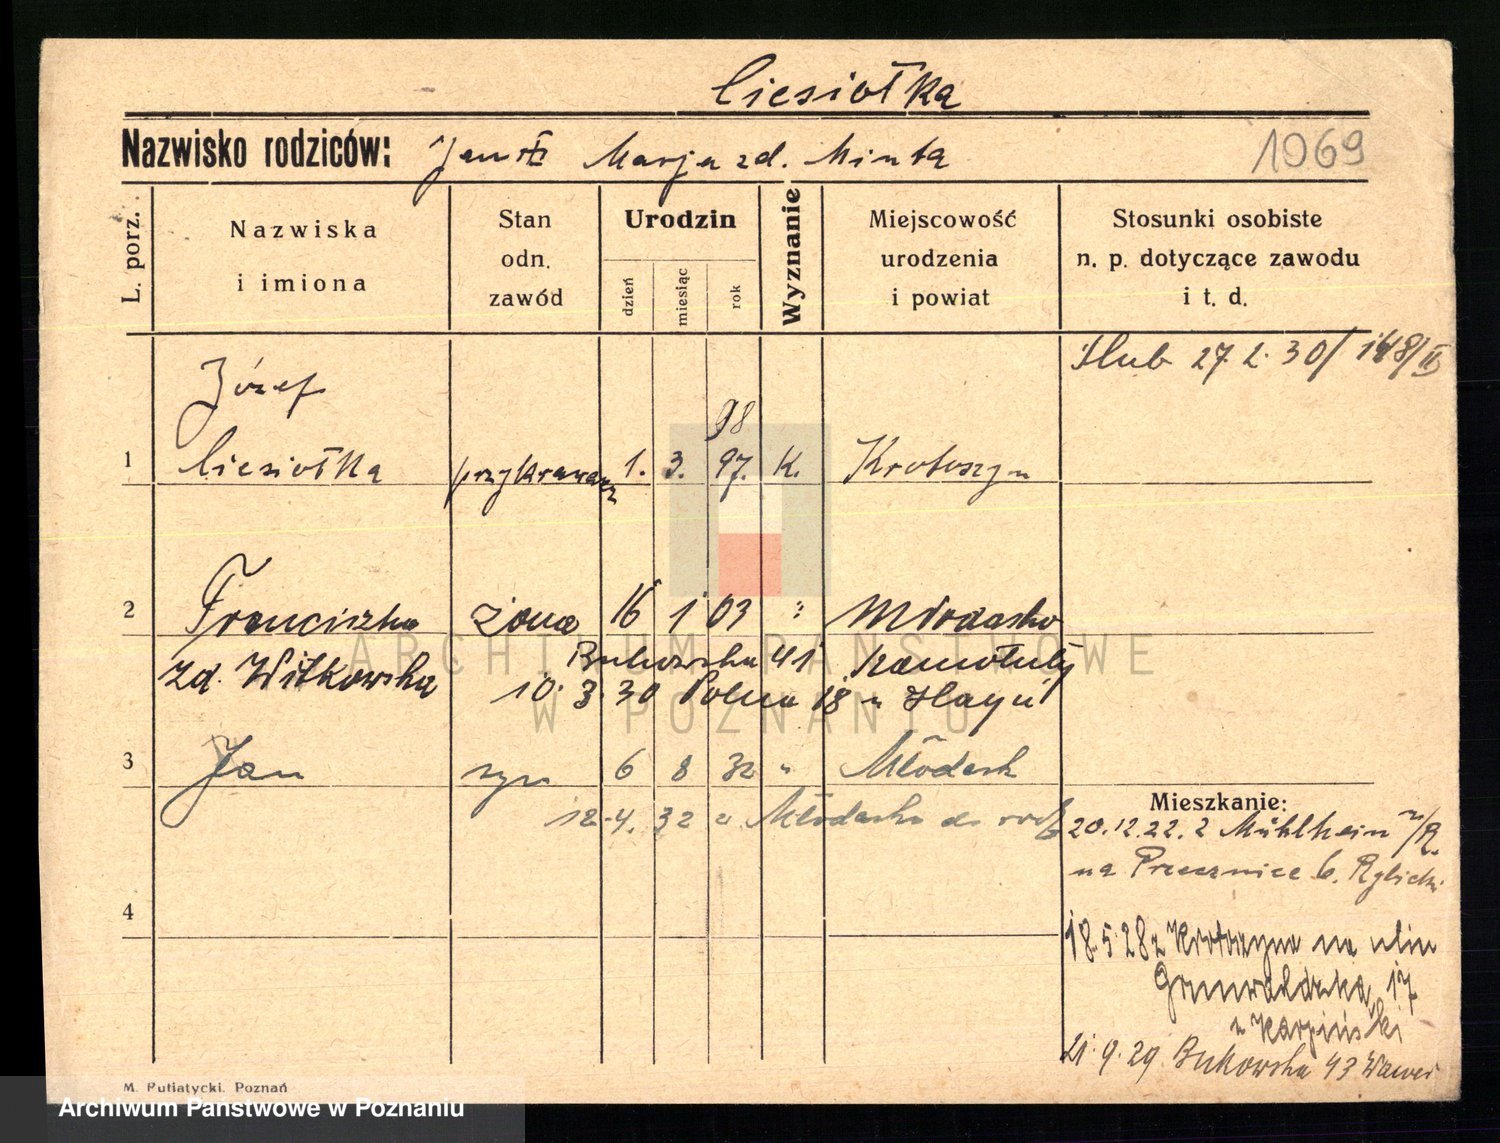 Ciesiołka
Nazwisko rodziców: Jan Marja zd. Minta
1069
L. porz.
Nazwiska
i imiona
Stan
odn.
zawód
Urodzin
dzień
miesiąc
rok
Wyznanie
Miejscowość
urodzenia
i powiat
Stosunki osobiste
n. p. dotyczące zawodu
i t. d.
Ślub 27. 2. 30/ 148/II
Józef
98
1 Ciesiołka przykrawacz 1. 3. 97. K. Krotoszyn
2 Franciszka żona 16 1 03 " Młodasko
zd. Witkowska
Bukowska 41 Szamotuły
10. 3. 30 Polna 18 u
3 Jan syn 6 8 32 " Młodask
12. 4. 32 z Młodaska do
Mieszkanie:
20. 12. 22. z Mühlheim n/R.
na Przecznice 6.
4
18. 5. 28 z Krotoszyna na ulin
Grunwaldzka, 17
u Karpiński
21. 9. 29. Bukowska 43
ARCHIWUM PAŃSTWOWE
W POZNANIU
M. Putiatycki, Poznań
Archiwum Państwowe w Poznaniu